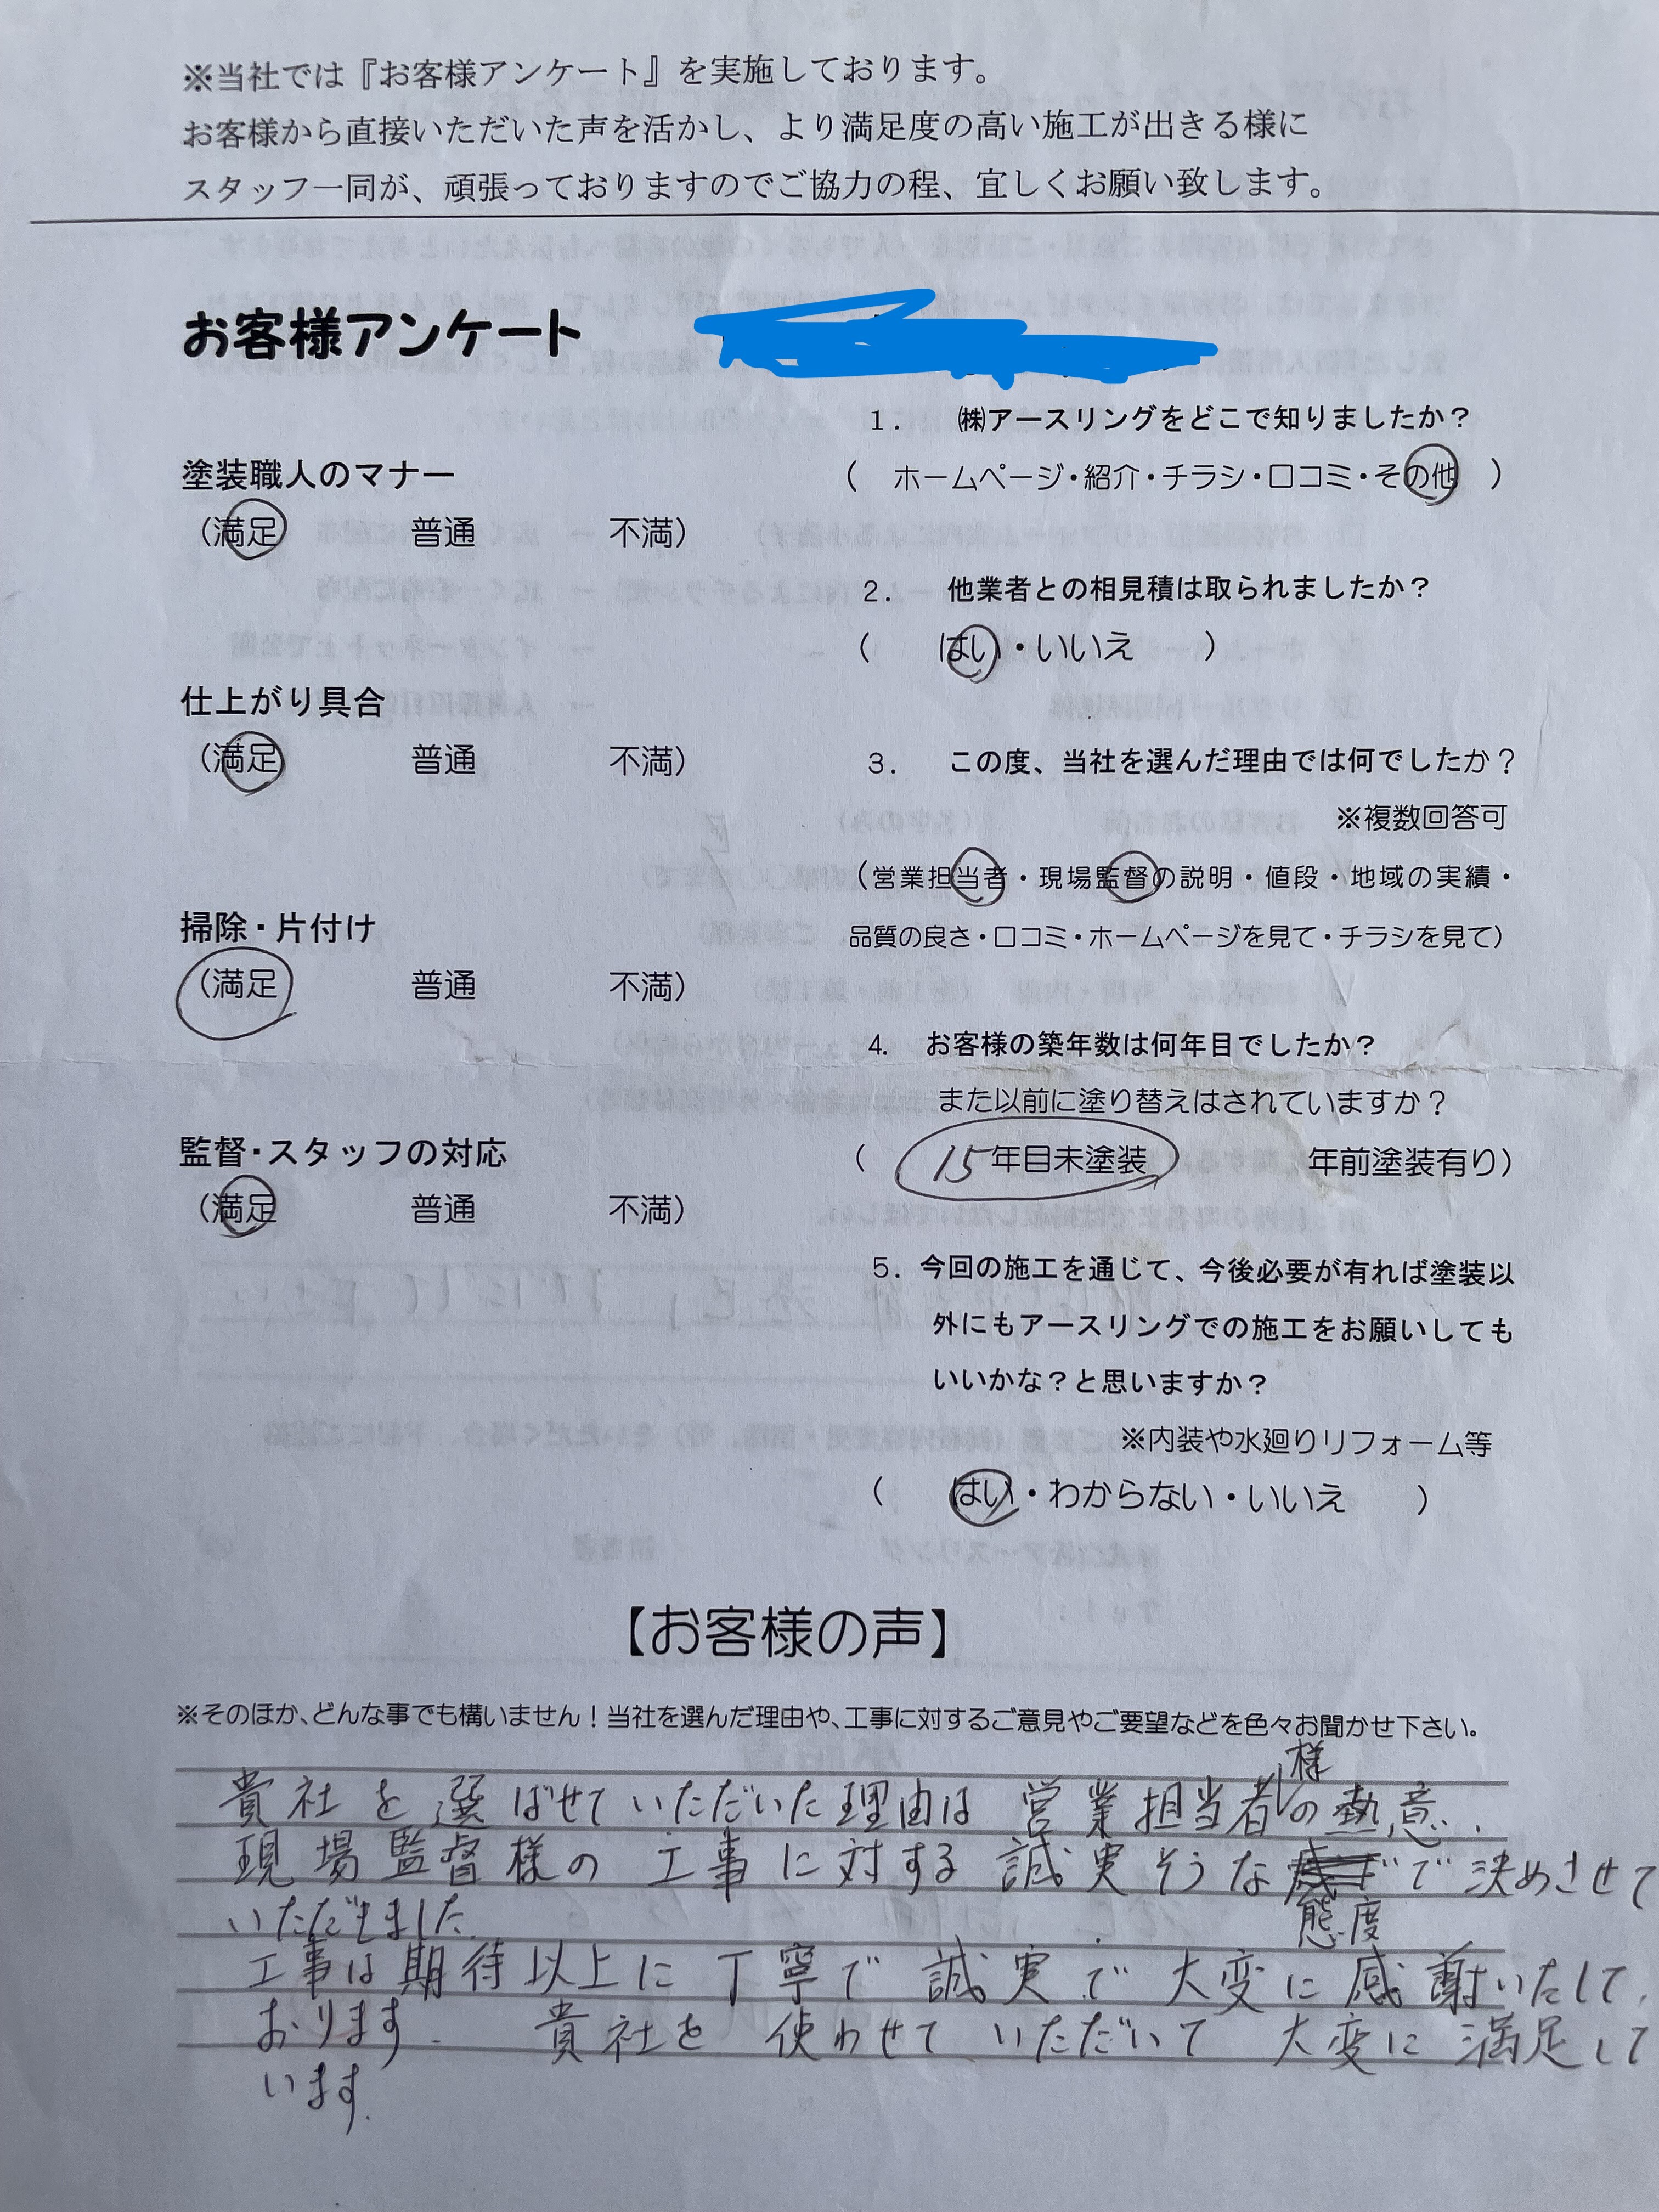 ※当社では『お客様アンケート』を実施しております。
お客様から直接いただいた声を活かし、より満足度の高い施工が出きる様に
スタッフ一同が、頑張っておりますのでご協力の程、宜しくお願い致します。
お客様アンケート
塗装職人のマナー
（満足 普通 不満）
仕上がり具合
（満足 普通 不満）
掃除・片付け
（満足 普通 不満）
監督・スタッフの対応
（満足 普通 不満）
1. ㈱アースリングをどこで知りましたか？
（ ホームページ・紹介・チラシ・口コミ・その他 ）
2. 他業者との相見積は取られましたか？
（ はい・いいえ ）
3. この度、当社を選んだ理由では何でしたか？
※複数回答可
（営業担当者・現場監督の説明・値段・地域の実績・
品質の良さ・口コミ・ホームページを見て・チラシを見て）
4. お客様の築年数は何年目でしたか？
また以前に塗り替えはされていますか？
（ 15年目未塗装 年前塗装有り）
5. 今回の施工を通じて、今後必要が有れば塗装以
外にもアースリングでの施工をお願いしても
いいかな？と思いますか？
※内装や水廻りリフォーム等
（ はい・わからない・いいえ ）
【お客様の声】
※そのほか、どんな事でも構いません！当社を選んだ理由や、工事に対するご意見やご要望などを色々お聞かせ下さい。
貴社を選ばせていただいた理由は営業担当者様の熱意.
現場監督様の工事に対する誠実そうな態度で決めさせて
いただきました.
工事は期待以上に丁寧で誠実で大変に感謝いたして
おります. 貴社を使わせていただいて大変に満足して
います.